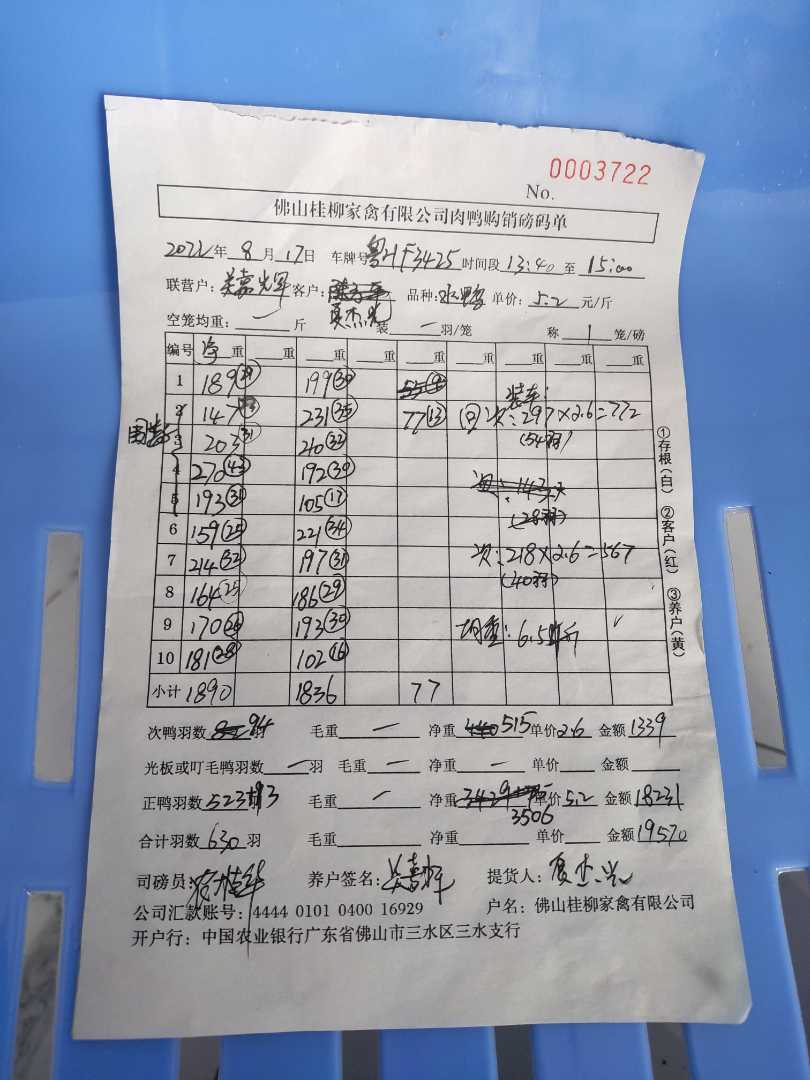 0003722
No.
佛山桂柳家禽有限公司肉鸭购销磅码单
2022年 8 月 17日 车牌号 粤HF3425 时间段 13:40 至 15:00
联营户: 客户: 品种:水鸭 单价: 5.2 元/斤
空笼均重: — 斤 装 — 羽/笼 称 1 笼/磅
编号 净重 重 重 重 重 重 重 重 重
1 189 199(30) 装车:
2 147 231(35) 77(13) 次:297×2.6=772
3 203(31) 210(32) (54羽)
4 270(43) 192(30)
5 193(31) 105(17) (28羽)
6 159(25) 221(34)
7 214(32) 197(31) 次:218×2.6=567
8 164(25) 186(29) (40羽)
9 170 193(30) 均重:6.5斤
10 181(28) 102(16)
小计 1890 1836 77
①存根(白) ②客户(红) ③养户(黄)
次鸭羽数 94 羽 毛重 — 净重 515 单价 2.6 金额 1339
光板或叮毛鸭羽数 — 羽 毛重 — 净重 — 单价 金额
正鸭羽数 523 毛重 — 净重 3506 单价 5.2 金额 18231
合计羽数 630 羽 毛重 净重 单价 金额 19570
司磅员: 养户签名: 提货人:
公司汇款账号: 4444 0101 0400 16929 户名: 佛山桂柳家禽有限公司
开户行: 中国农业银行广东省佛山市三水区三水支行